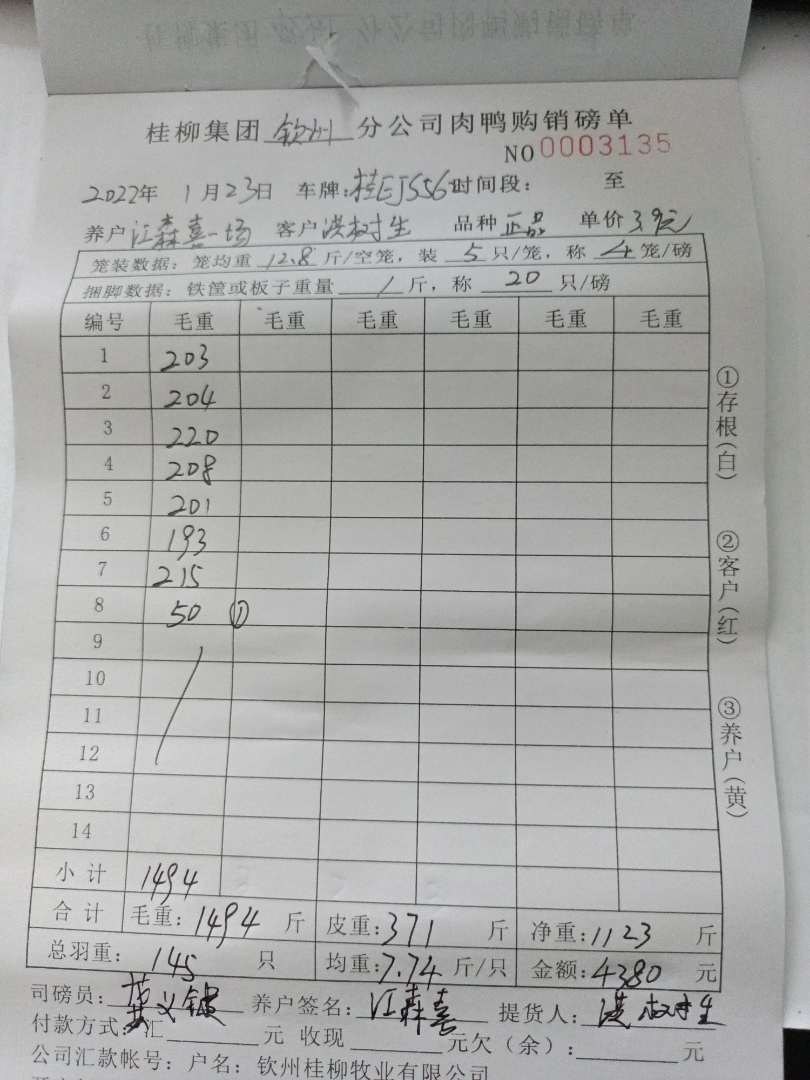 桂柳集团 钦州 分公司肉鸭购销磅单
NO 0003135
2022年 1月23日 车牌:桂EJS56 时间段: 至
养户 江森喜一场 客户 洪树生 品种 正品 单价 3.9元
笼装数据:笼均重 12.8 斤/空笼,装 5 只/笼,称 4 笼/磅
捆脚数据:铁筐或板子重量 / 斤,称 20 只/磅
编号 毛重 毛重 毛重 毛重 毛重 毛重
1 203
2 204
3 220
4 208
5 201
6 193
7 215
8 50 ①
9
10
11
12
13
14
小计 1494
合计 毛重:1494 斤 皮重:371 斤 净重:1123 斤
总羽重: 145 只 均重:7.74 斤/只 金额:4380 元
司磅员: 养户签名:江森喜 提货人:洪树生
付款方式:汇 元 收现 元欠(余): 元
公司汇款帐号:户名:钦州桂柳牧业有限公司
①存根(白)
②客户(红)
③养户(黄)